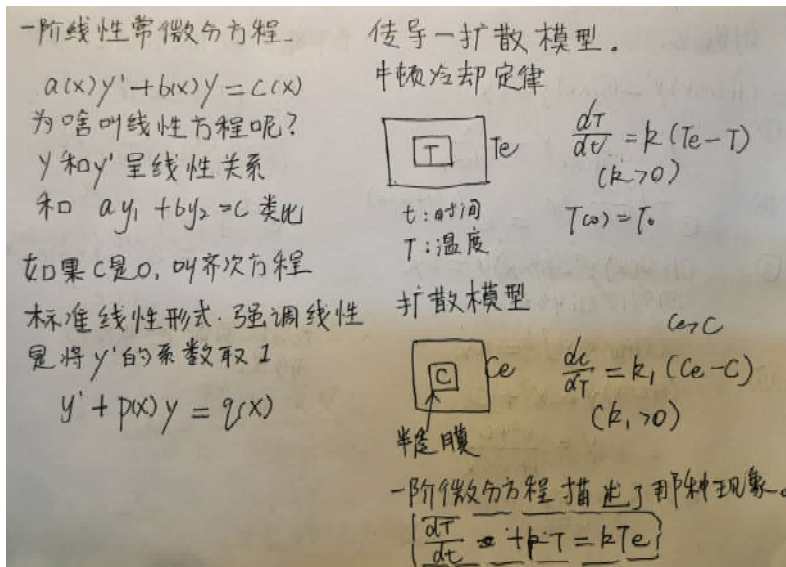 一阶线性常微分方程
a(x)y'+b(x)y=c(x)
为啥叫线性方程呢?
y和y'呈线性关系
和 ay₁+by₂=c 类比
如果C是0,叫齐次方程
标准线性形式.强调线性
是将y'的系数取1
y'+p(x)y=q(x)
传导一扩散模型.
牛顿冷却定律
T Te
dT/dt = k(Te-T)
(k>0)
t:时间
T:温度
T(0)=T₀
扩散模型
Ce>C
C Ce
dc/dT = k₁(Ce-C)
(k₁>0)
半透膜
一阶微分方程描述了那种现象.
dT/dt +kT=kTe